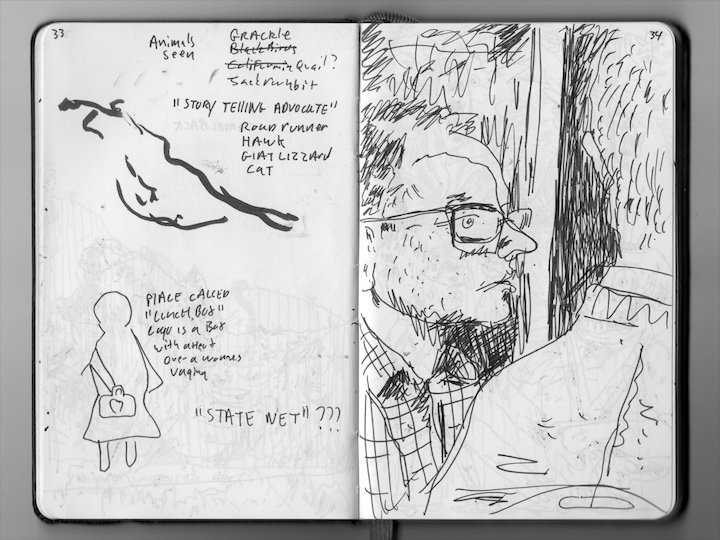 33
Animals
seen
GRACKLE
BlackBirds
California Quail?
Jackrabbit
"STORY TELLING ADVOCATE"
ROAD runner
HAWK
GIAT LIZZARD
CAT
PLACE CALLED
"LUNCH BOX"
Logo is a Box
with a heart
over a womans
vagina
"STATE NET"???
34